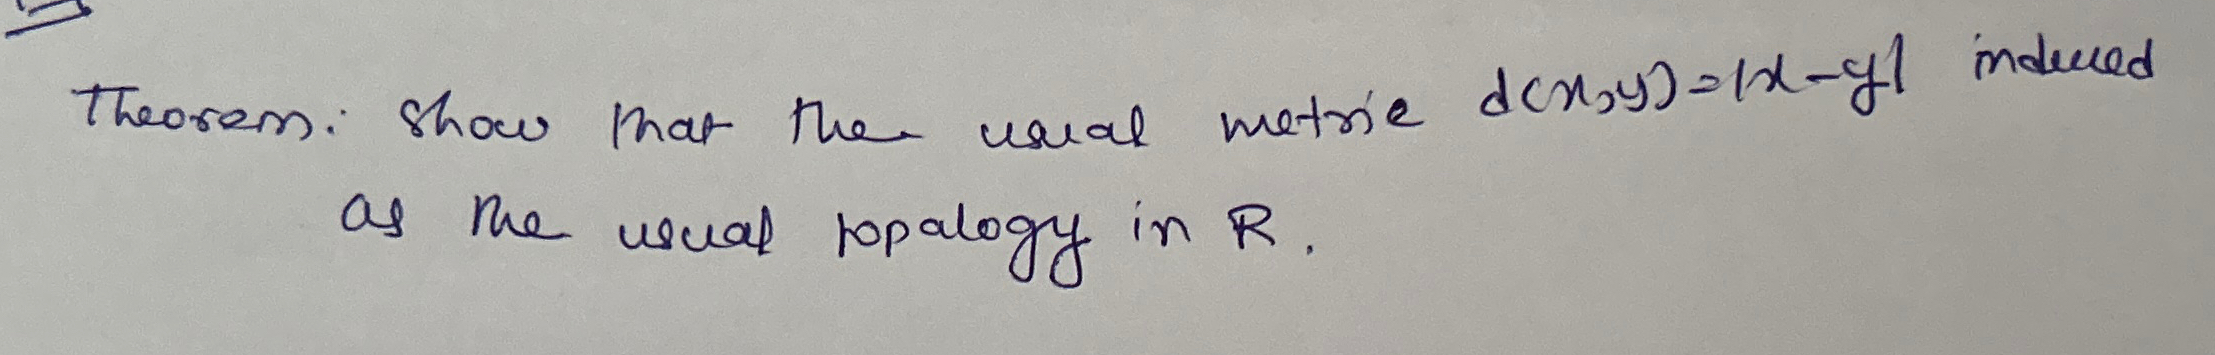 Theorem: Show that the usual metric d(x,y)=|x-y| induced
as the usual topalogy in R.